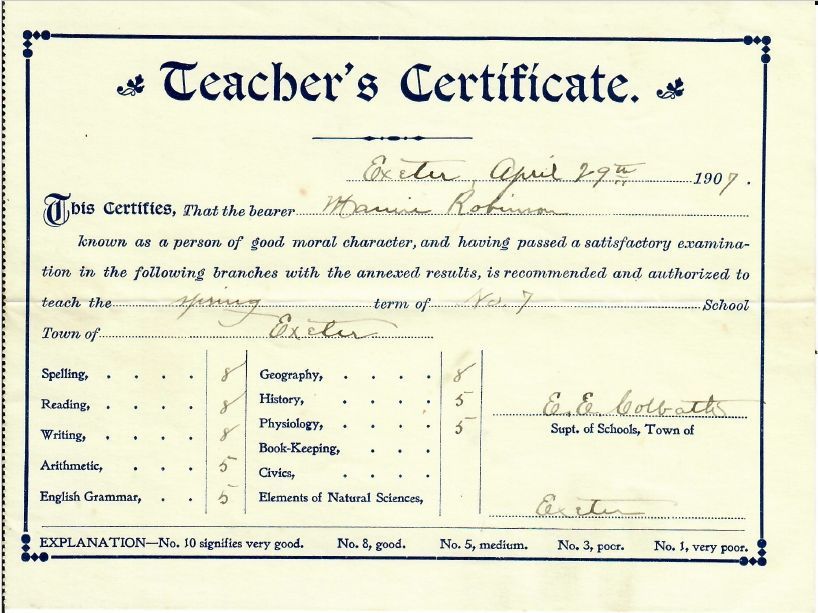 Teacher's Certificate.
Exeter, April 29th 1907.
This Certifies, That the bearer Mamie Robinson
known as a person of good moral character, and having passed a satisfactory examina-
tion in the following branches with the annexed results, is recommended and authorized to
teach the spring term of No. 7 School
Town of Exeter
Spelling, . . . . 8
Reading, . . . . 8
Writing, . . . . 8
Arithmetic, . . . 5
English Grammar, . . 5
Geography, . . . . 8
History, . . . . 5
Physiology, . . . . 5
Book-Keeping, . . .
Civics, . . . .
Elements of Natural Sciences,
E. E. Colbath
Supt. of Schools, Town of
Exeter
EXPLANATION—No. 10 signifies very good. No. 8, good. No. 5, medium. No. 3, poor. No. 1, very poor.